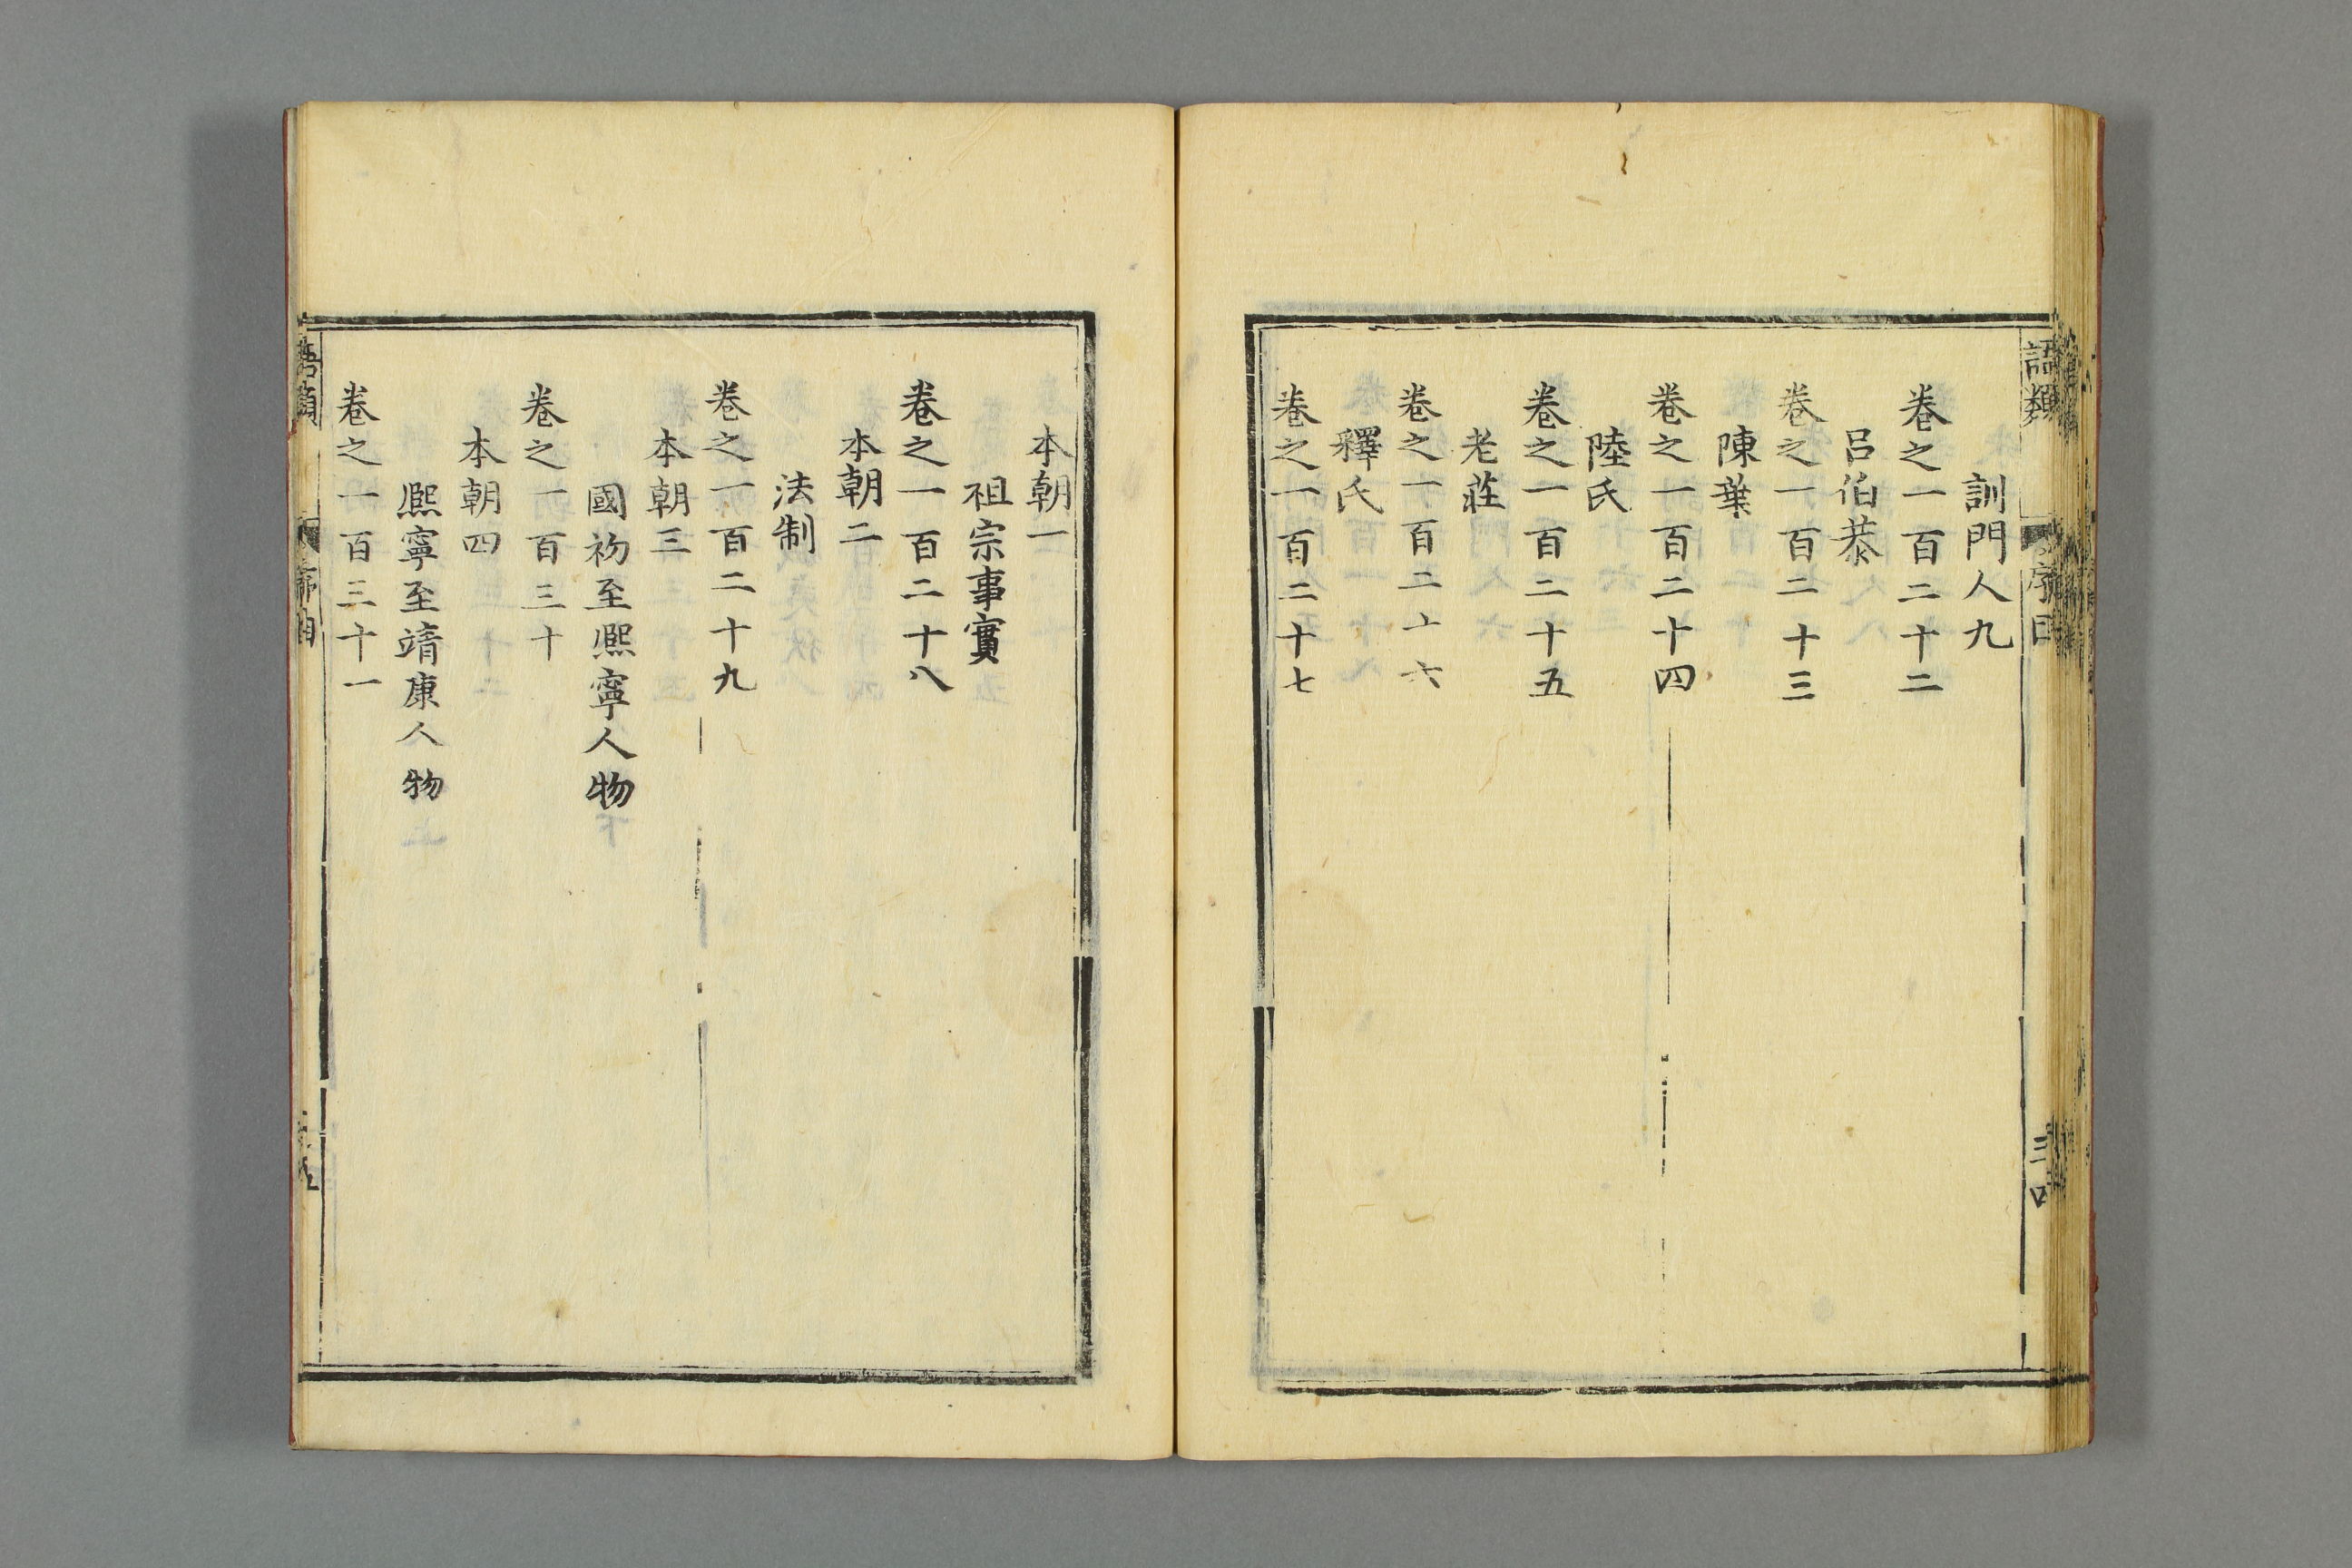 語類
序目
三四
訓門人九
卷之一百二十二
呂伯恭
卷之一百二十三
陳葉
卷之一百二十四
陸氏
卷之一百二十五
老莊
卷之一百二十六
釋氏
卷之一百二十七
本朝一
祖宗事實
卷之一百二十八
本朝二
法制
卷之一百二十九
本朝三
國初至熈寧人物
卷之一百三十
本朝四
熈寧至靖康人物
卷之一百三十一
語類
序目